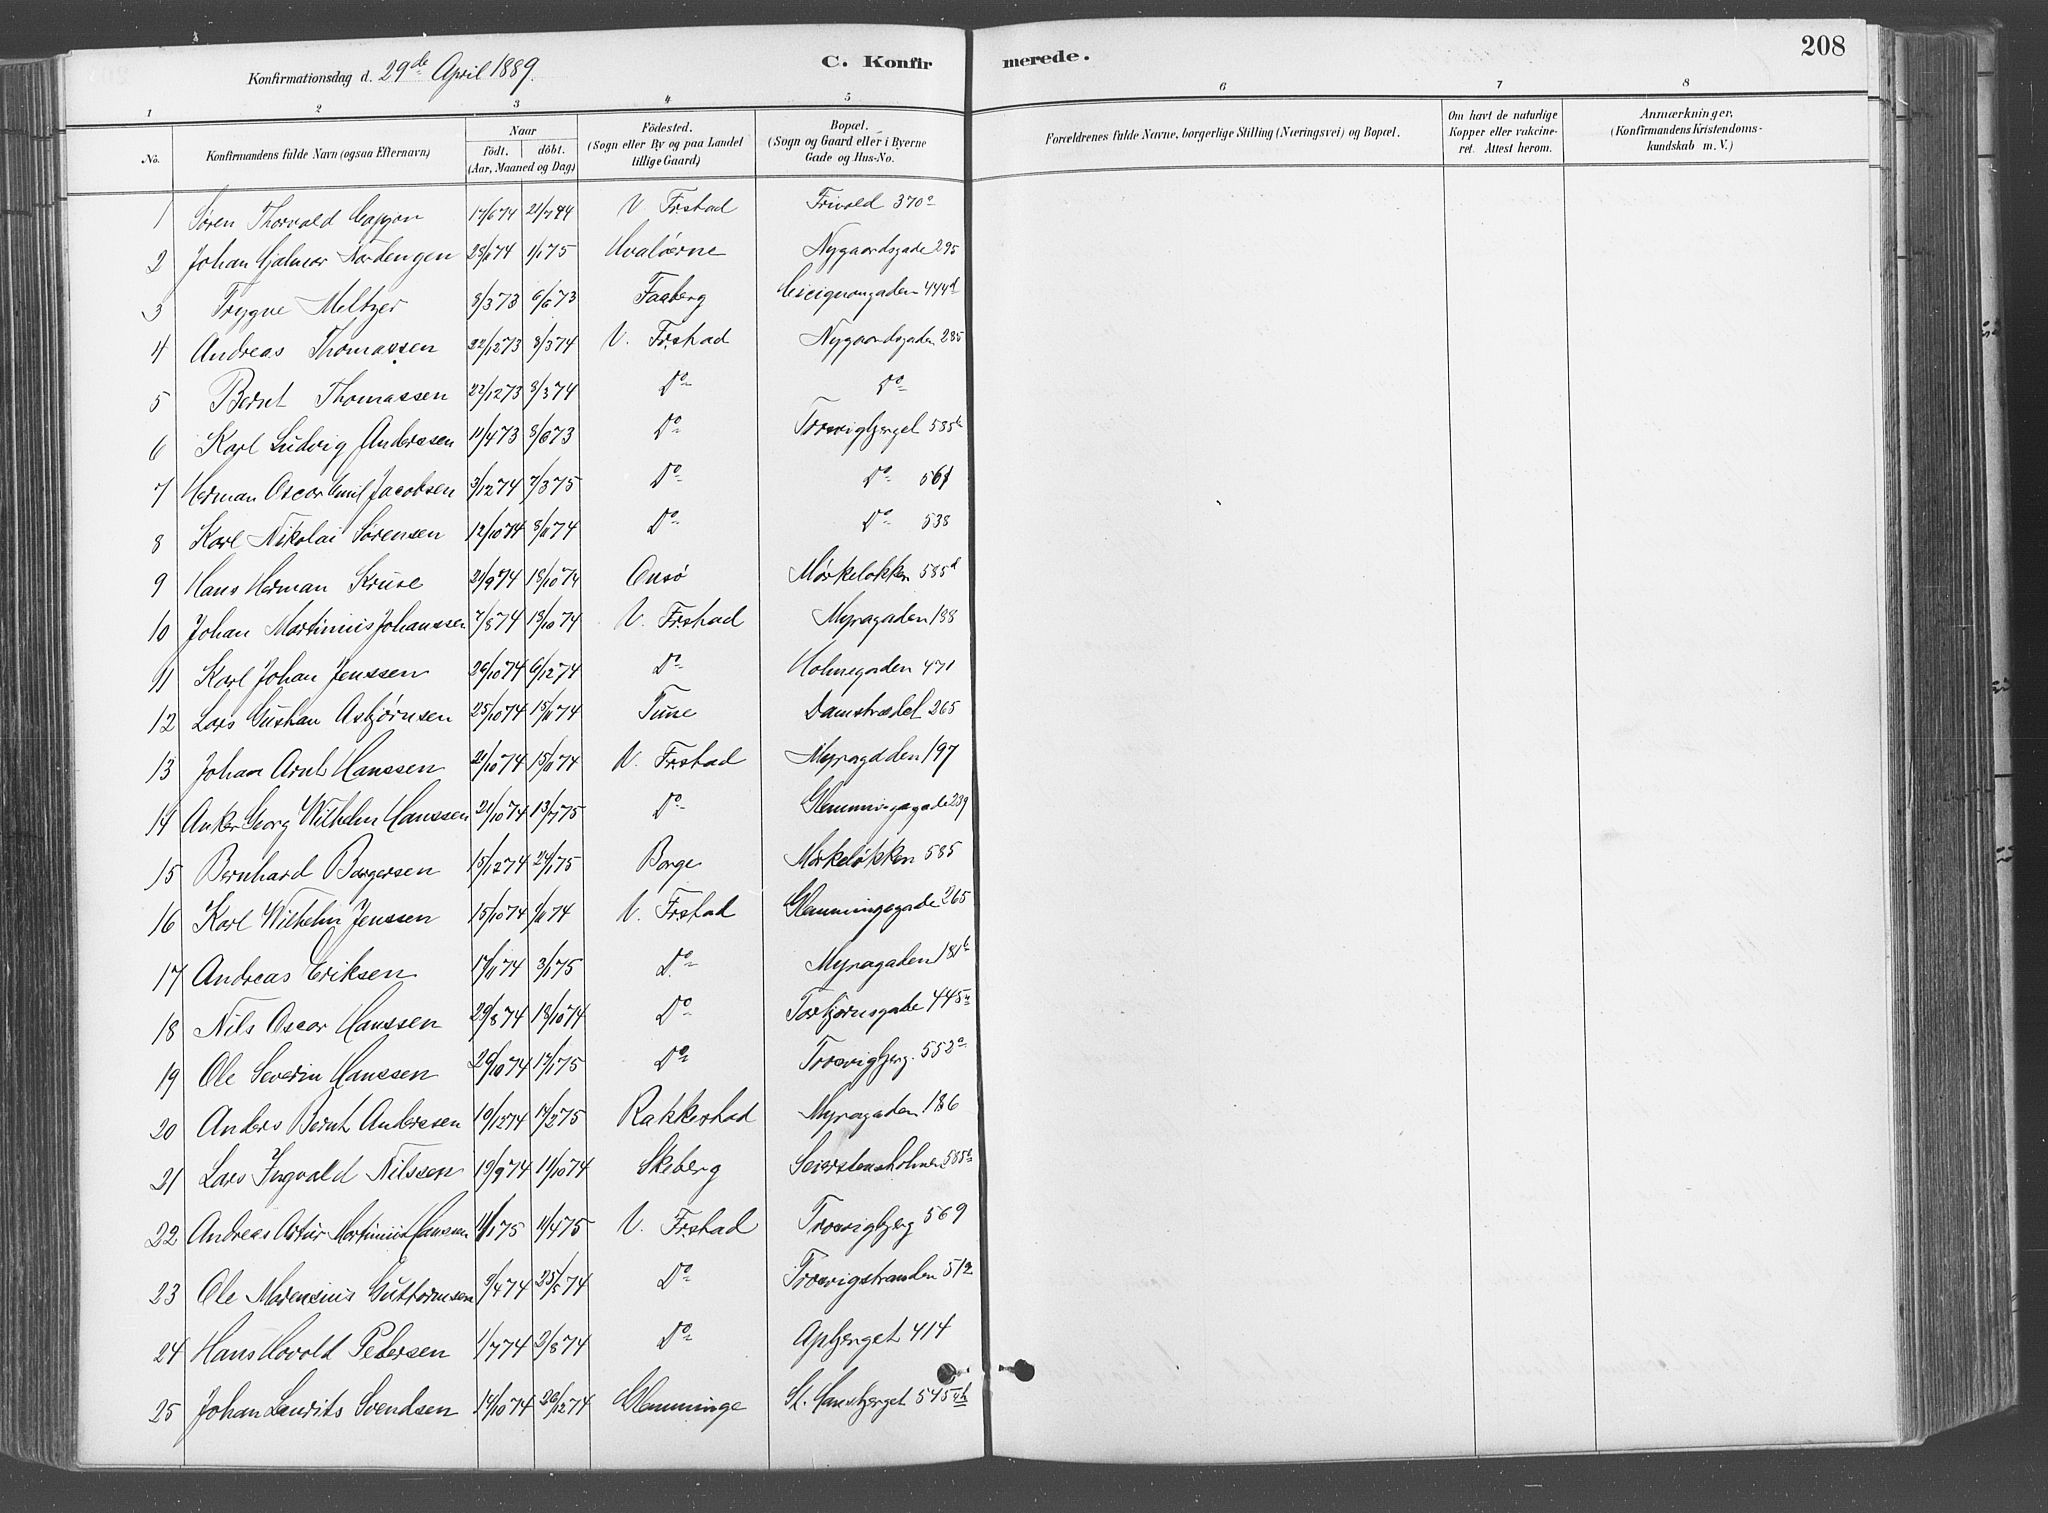 Konfirmationsdag d. 29de April 1889.
C. Konfirmerede.
208
1 2 3 4 5 6 7 8
No. Konfirmandens fulde Navn (ogsaa Efternavn) Naar født. døbt. (Aar, Maaned og Dag) Födested. (Sogn eller By og paa Landet tillige Gaard) Bopæl. (Sogn og Gaard eller i Byerne Gade og Hus-No. Forældrenes fulde Navne, borgerlige Stilling (Næringsvei) og Bopæl. Om havt de naturlige Kopper eller vakcineret. Attest herom. Anmærkninger. (Konfirmandens Kristendomskundskab m. V.)
1 Søren Thorvald 17/6 74 V. Frstad Frivold 370
2 Johan Hjalmar Nordengen Hvaløerne Nygaardsgade 295
3 Trygve Meltzer 8/3 73 6/6 73 Faaberg Cicignongaden 444d
4 Andreas Thomassen 22/12 73 8/3 74 V. Frstad Nygaardsgaden 285
5 Bernt Thomassen 22/12 73 8/3 74 Do Do
6 Karl Ludvig Anderssen 11/4 73 8/6 73 Do Trosvigbjerget 535b
7 Herman Oscar Emil Jacobsen 3/12 74 7/3 75 Do Do 561
8 Karl Nikolai Sørensen 12/10 74 8/11 74 Do Do 538
9 Hans Herman Kruse 21/9 74 18/10 74 Onsö Mørkeløkken 585d
10 Johan Martinius Johanssen 7/8 74 18/10 74 V. Frstad Myragaden 188
11 Karl Johan Jenssen 26/10 74 6/12 74 Do Holmegaden 471
12 Lars Gustav Asbjørnsen 25/10 74 15/11 74 Tune Damstrædet 265
13 Johan Arnt Hanssen 21/10 74 15/11 74 V. Frstad Myragaden 197
14 Anker Georg Wilhelm Hanssen 21/10 74 13/7 75 Do Glemmingegade 239
15 Bernhard Borgersen 15/12 74 24/1 75 Borge Mørkeløkken 585
16 Karl Wilhelm Jenssen 15/10 74 1/11 74 V. Frstad Glemmingegade 265
17 Andreas Eriksen 17/11 74 3/1 75 Do Myragaden 181b
18 Nils Oscar Hanssen 29/8 74 18/10 74 Do Torbjørnsgade 445a
19 Ole Severin Hanssen 26/10 74 17/1 75 Do Trosvigbjerg. 552a
20 Anders Bernt Anderssen 10/12 74 14/2 75 Rakkestad Myragaden 186
21 Lars Ingvald Nilssen 19/9 74 11/10 74 Skeberg Seierstensholmen 585a
22 Andreas Artur Martinius Hanssen 11/1 75 11/4 75 V. Frstad Trosvigbjerg 569
23 Ole Marensius Guttormsen 9/4 74 25/5 74 Do Trosvigstranden 512
24 Hans Hovold Petersen 1/7 74 2/8 74 Do Apbjerget 414
25 Johan Laurits Svendsen 14/10 74 26/12 74 Glemminge St. Hansbjerget 545